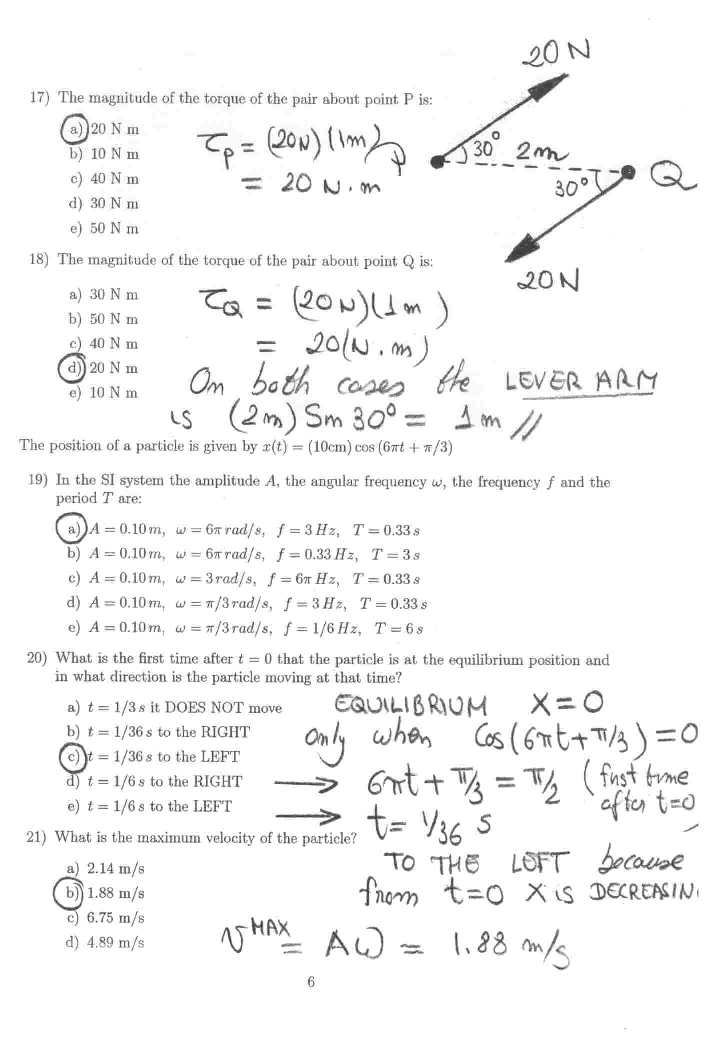 20 N
17) The magnitude of the torque of the pair about point P is:
a) 20 N m
b) 10 N m
c) 40 N m
d) 30 N m
e) 50 N m
τP = (20N)(1m)
= 20 N.m
P
30° 2m
30°
Q
20N
18) The magnitude of the torque of the pair about point Q is:
a) 30 N m
b) 50 N m
c) 40 N m
d) 20 N m
e) 10 N m
τQ = (20N)(1m)
= 20(N.m)
On both cases the LEVER ARM
is (2m) Sin 30° = 1m //
The position of a particle is given by x(t) = (10cm) cos (6πt + π/3)
19) In the SI system the amplitude A, the angular frequency ω, the frequency f and the
period T are:
a) A = 0.10 m, ω = 6π rad/s, f = 3 Hz, T = 0.33 s
b) A = 0.10 m, ω = 6π rad/s, f = 0.33 Hz, T = 3 s
c) A = 0.10 m, ω = 3 rad/s, f = 6π Hz, T = 0.33 s
d) A = 0.10 m, ω = π/3 rad/s, f = 3 Hz, T = 0.33 s
e) A = 0.10 m, ω = π/3 rad/s, f = 1/6 Hz, T = 6 s
20) What is the first time after t = 0 that the particle is at the equilibrium position and
in what direction is the particle moving at that time?
a) t = 1/3 s it DOES NOT move
b) t = 1/36 s to the RIGHT
c) t = 1/36 s to the LEFT
d) t = 1/6 s to the RIGHT
e) t = 1/6 s to the LEFT
EQUILIBRIUM X=0
only when Cos(6πt+π/3)=0
6πt+π/3 = π/2 (first time
after t=0
t= 1/36 s
21) What is the maximum velocity of the particle?
a) 2.14 m/s
b) 1.88 m/s
c) 6.75 m/s
d) 4.89 m/s
TO THE LEFT because
from t=0 X is DECREASIN
v MAX = Aω = 1.88 m/s
6